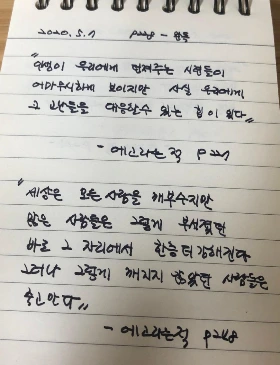 2020.5.7 p228 - 완독
"인생이 우리에게 던져주는 시련들이
어마무시하게 보이지만 사실 우리에게
그 고난들을 대응할수 있는 힘이 있다"
- 에고라는 적 p227
"세상은 모든 사람을 깨부수지만
많은 사람들은 그렇게 부서졌던
바로 그 자리에서 한층 더 강해진다
그러나 그렇게 깨지지 않았던 사람들은
죽고만다"
- 에고라는적 p228